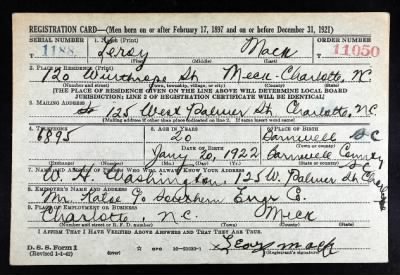 REGISTRATION CARD—(Men born on or after February 17, 1897 and on or before December 31, 1921)
SERIAL NUMBER 1. Name (Print) ORDER NUMBER
T 1188 Leroy Mack 11050
(First) (Middle) (Last)
2. Place of Residence (Print)
120 Winthrope St. Meck-Charlotte, N.C.
(Number and street) (Town, township, village, or city) (County) (State)
[THE PLACE OF RESIDENCE GIVEN ON THE LINE ABOVE WILL DETERMINE LOCAL BOARD
JURISDICTION; LINE 2 OF REGISTRATION CERTIFICATE WILL BE IDENTICAL]
3. Mailing Address
125 West Palmer St. Charlotte, N.C.
[Mailing address if other than place indicated on line 2. If same insert word same]
4. Telephone 5. Age in Years 6. Place of Birth
6895 20 Barnwell S C
Date of Birth (Town or county)
Jany 20, 1922 Barnwell County
(Exchange) (Number) (Mo.) (Day) (Yr.) (State or country)
7. Name and Address of Person Who Will Always Know Your Address
W. H. Washington, 125 W. Palmer St Charlotte
8. Employer's Name and Address
Mr.
9. Place of Employment or Business
Charlotte, N.C. Meck
(Number and street or R. F. D. number) (Town) (County) (State)
I Affirm That I Have Verified Above Answers and That They Are True.
D. S. S. Form 1
(Revised 1-1-42) (over)
Leroy Mack
(Registrant's signature)